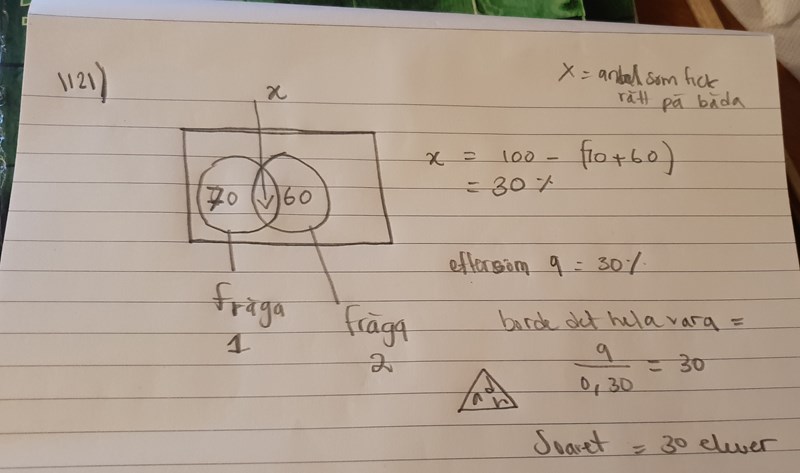 1121)
x
X = antal som fick
rätt på båda
x = 100 - (70+60)
= 30 %
70
60
eftersom 9 = 30%
fråga
1
fråga
2
borde det hela vara =
9
0,30
= 30
Svaret = 30 elever